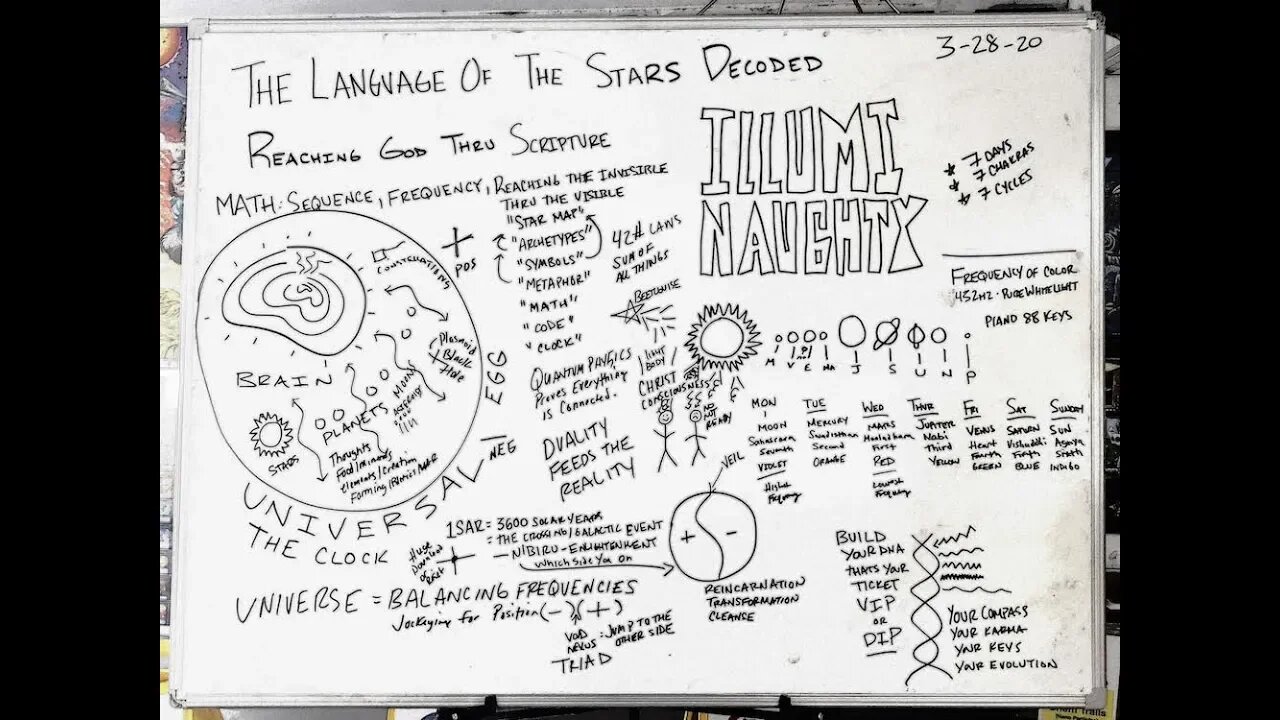 3-28-20
THE LANGUAGE OF THE STARS DECODED
REACHING GOD THRU SCRIPTURE
MATH: SEQUENCE, FREQUENCY, REACHING THE INVISIBLE
THRU THE VISIBLE
"STAR MAP"
"ARCHETYPES"
"SYMBOLS"
"METAPHOR"
"MATH"
"CODE"
"CLOCK"
42 # LAWS
SUM OF
ALL THINGS
ILLUMI
NAUGHTY
* 7 DAYS
* 7 CHAKRAS
* 7 CYCLES
FREQUENCY OF COLOR
432HZ - PURE WHITE LIGHT
PIANO 88 KEYS
+
POS
CONSTELLATIONS
Plasmoid
Black
Hole
BRAIN
PLANETS
MOONS
STARS
Thoughts
Elements/Creation
EGG
NEG
UNIVERSAL
THE CLOCK
BEETLEJUISE
QUANTUM PHYSICS
Proves Everything
is Connected.
LIGHT
BODY
CHRIST
CONSCIOUSNESS
NOT
READY
DUALITY
FEEDS THE
REALITY
M V E MA J S U N P
MON
MOON
Sahasrara
Seventh
VIOLET
Highest
Frequency
TUE
MERCURY
Second
ORANGE
WED
MARS
First
RED
Lowest
Frequency
THUR
JUPITER
Nabi
Third
YELLOW
FRI
VENUS
Heart
Fourth
GREEN
SAT
SATURN
Vishuddi
Fifth
BLUE
SUNDAY
SUN
Sixth
INDIGO
VEIL
+ -
REINCARNATION
TRANSFORMATION
CLEANSE
1 SAR = 3600 SOLAR YEARS
= THE CROSSING/GALACTIC EVENT
- NIBIRU - ENLIGHTENMENT
Which Side You On
Huge
Download
UNIVERSE = BALANCING FREQUENCIES
Jockeying for Position (-)(+)
VOID
NEXUS: JUMP TO THE
OTHER SIDE
TRIAD
BUILD
YOUR DNA
THATS YOUR
TICKET
VIP
OR
DIP
YOUR COMPASS
YOUR KARMA
YOUR KEYS
YOUR EVOLUTION